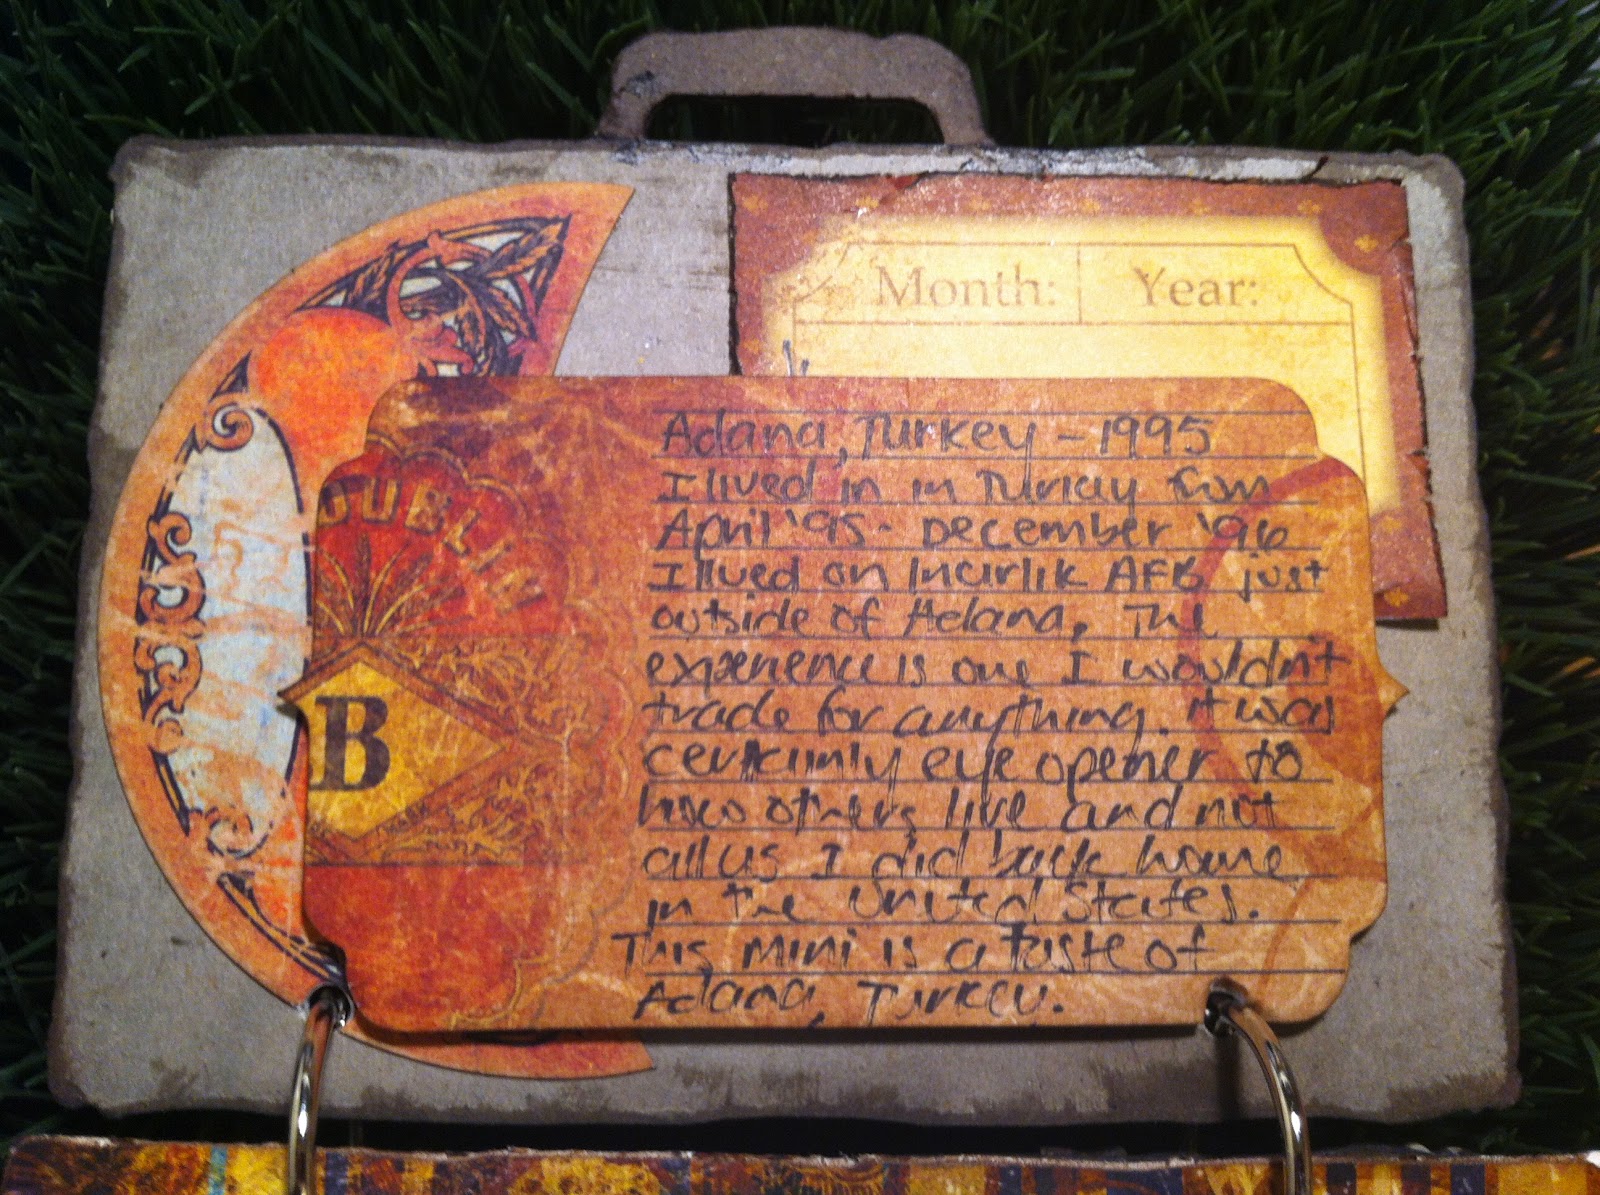 Month: Year:
Adana, Turkey - 1995
I lived in in Turkey from
April '95 - December '96
I lived on Incirlik AFB just
outside of Adana. The
experience is one I wouldn't
trade for anything. it was
certainly eye opener to
how others live and not
all us I did back home
in the United States.
This mini is a taste of
Adana, Turkey.
DUBLIN
B